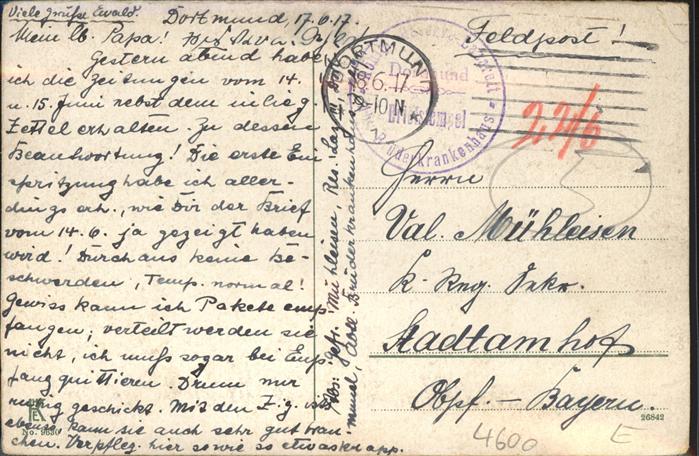 Viele Grüße Ewald.
Dortmund, 17.6.17.
Mein lb. Papa!
Gestern abend habe
ich die Zeitungen vom 14.
u. 15. Juni nebst dem inlieg.
Zettel erhalten. Zu dessen
Beantwortung! Die erste Ein
spritzung habe ich aller-
dings erh., wie Dir der Brief
vom 14.6. ja gezeigt haben
wird! Durchaus keine Be-
schwerden, Temp. normal!
Gewiss kann ich Pakete emp
fangen; verteilt werden sie
nicht, ich muß sogar bei Emp-
fang quittieren. Drum nur
ruhig geschickt. Mit den Zig. ist
ebenso, kann sie auch sehr gut brau
chen. Verpfleg. hier sowieso etwas knapp.
Abs: Gefr. Mühleisen, Res. Laz.
mund, Brüderkrankenhaus
DORTMUND
18.6.17
9-10 N
Dortmund
Briefstempel
Brüderkrankenhaus
Feldpost!
22/6
3
Herrn
Val. Mühleisen
K. Reg. Sekr.
Stadtamhof
Obpf. - Bayern.
No. 9630
26842
4600
E